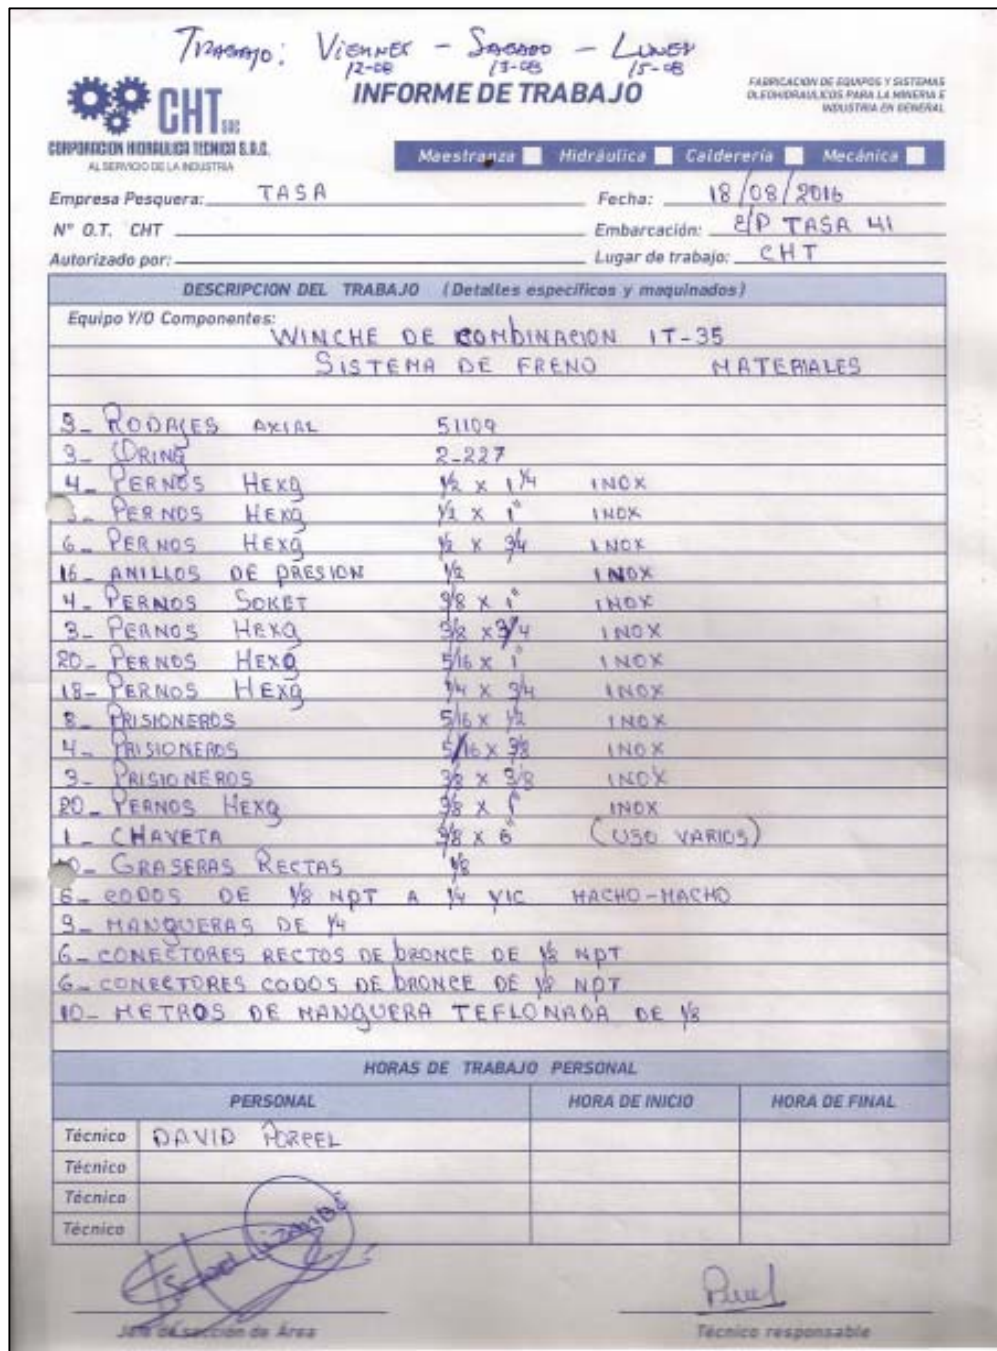 TRABAJO: VIERNES - SABADO - LUNES
12-08 13-08 15-08
CHT SAC
CORPORACION HIDRAULICA TECNICA S.A.C.
AL SERVICIO DE LA INDUSTRIA
INFORME DE TRABAJO
FABRICACION DE EQUIPOS Y SISTEMAS
OLEOHIDRAULICOS PARA LA MINERIA E
INDUSTRIA EN GENERAL
Maestranza Hidráulica Calderería Mecánica
Empresa Pesquera: TASA Fecha: 18/08/2016
N° O.T. CHT Embarcación: E/P TASA 41
Autorizado por: Lugar de trabajo: CHT
DESCRIPCION DEL TRABAJO (Detalles específicos y maquinados)
Equipo Y/O Componentes:
WINCHE DE COMBINACION IT-35
SISTEMA DE FRENO MATERIALES
3- RODAJES AXIAL 51109
3- ORING 2-227
4- PERNOS HEXG 1/2 x 1 1/4 INOX
PERNOS HEXG 1/2 x 1" INOX
6- PERNOS HEXG 1/2 x 3/4 INOX
16- ANILLOS DE PRESION 1/2 INOX
4- PERNOS SOKET 3/8 x 1" INOX
3- PERNOS HEXG 3/8 x 3/4 INOX
20- PERNOS HEXG 5/16 x 1" INOX
18- PERNOS HEXG 1/4 x 3/4 INOX
8- PRISIONEROS 5/16 x 1/2 INOX
4- PRISIONEROS 5/16 x 3/8 INOX
3- PRISIONEROS 3/8 x 3/8 INOX
20- PERNOS HEXG 3/8 x 1" INOX
1- CHAVETA 3/8 x 6" (USO VARIOS)
GRASERAS RECTAS 1/8
6- CODOS DE 1/8 NPT A 1/4 YIC MACHO-MACHO
3- MANGUERAS DE 1/4
6- CONECTORES RECTOS DE bRONCE DE 1/8 NPT
6- CONECTORES CODOS DE bRONCE DE 1/8 NPT
10- METROS DE MANGUERA TEFLONADA DE 1/8
HORAS DE TRABAJO PERSONAL
PERSONAL HORA DE INICIO HORA DE FINAL
Técnico DAVID
Técnico
Técnico
Técnico
Jefe de sección de Area Técnico responsable